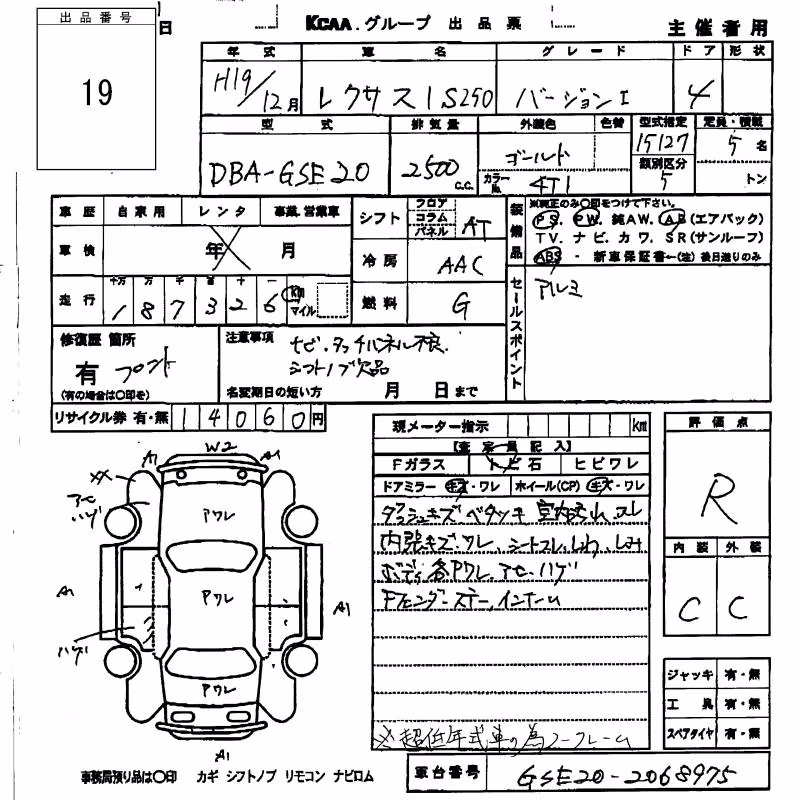 出品番号
19
日
KCAA.グループ 出品票
主催者用
年式 車名 グレード ドア 形状
H19/12月 レクサスIS250 バージョンI 4
型式 排気量 外装色 色替 型式指定 定員・積載
DBA-GSE20 2500 C.C. ゴールド 15127 5名
カラーNo. 4T1 類別区分 5 トン
車歴 自家用 レンタ 事業・営業車
シフト フロア コラム パネル AT
装備品
※純正のみ〇印をつけて下さい。
PS. PW. 純AW. AB(エアバック)
TV. ナビ. カワ. SR(サンルーフ)
ABS - 新車保証書←(注)後日送りのみ
車検 年 月
冷房 AAC
走行 十万 万 千 百 十 一
187326 km マイル
燃料 G
セールスポイント
アルミ
修復歴 箇所
有 フロント
(有の場合は〇印を)
注意事項 ナビ.タッチパネル不良.
シフトノブ欠品
名変期日の短い方 月 日まで
リサイクル券 有・無 14060円
現メーター指示 km
【査定員記入】
Fガラス トビ石 ヒビワレ
ドアミラー キズ・ワレ ホイール(CP) キズ・ワレ
ダッシュキズ ベタツキ 室内汚れ.スレ
内張キズ.ワレ、シートスレ.しわ.しみ
ボディ各Pワレ.アセ.ハゲ
Fフェンダーステー、インナーム
※超低年式車の為ノークレーム
評価点
R
内装 外装
C C
ジャッキ 有・無
工具 有・無
スペアタイヤ 有・無
W2
A1 A1
XX
アセ
ハゲ
Pワレ
Pワレ
A1 A1
ハゲ
Pワレ
A1
事務局預り品は〇印 カギ シフトノブ リモコン ナビロム
車台番号 GSE20-2068975